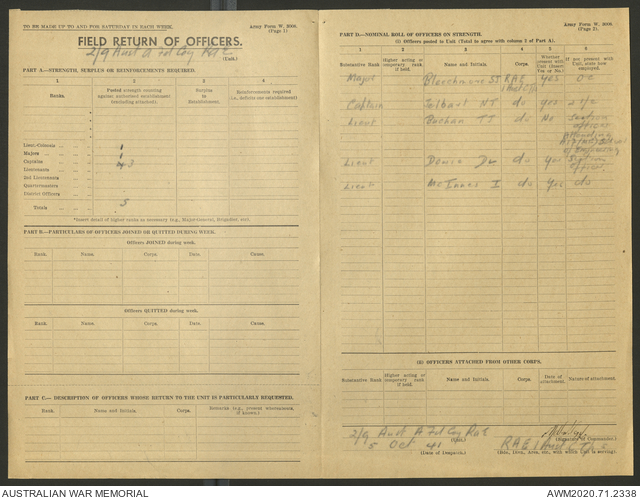 TO BE MADE UP TO AND FOR SATURDAY IN EACH WEEK.
Army Form W. 3008.
(Page 1)
FIELD RETURN OF OFFICERS.
2/9 Aust A Fd Coy RAE
(Unit.)
PART A.—STRENGTH, SURPLUS OR REINFORCEMENTS REQUIRED.
1 2 3 4
Ranks. Posted strength counting against authorised establishment (excluding attached). Surplus to Establishment. Reinforcements required (i.e., deficits one establishment)
Lieut.-Colonels
Majors 1
Captains 1
Lieutenants 3
2nd Lieutenants
Quartermasters
District Officers
Totals 5
*Insert detail of higher ranks as necessary (e.g., Major-General, Brigadier, etc.).
PART B.—PARTICULARS OF OFFICERS JOINED OR QUITTED DURING WEEK.
Officers JOINED during week.
Rank. Name. Corps. Date. Cause.
Officers QUITTED during week.
Rank. Name. Corps. Date. Cause.
PART C.—DESCRIPTION OF OFFICERS WHOSE RETURN TO THE UNIT IS PARTICULARLY REQUESTED.
Rank. Name and Initials. Corps. Remarks (e.g., present whereabouts, if known.)
Army Form W. 3008.
(Page 2).
PART D.—NOMINAL ROLL OF OFFICERS ON STRENGTH.
(i) Officers posted to Unit (Total to agree with column 2 of Part A).
1 2 3 4 5 6
Substantive Rank Higher acting or temporary rank if held. Name and Initials. Corps. Whether present with Unit (Insert Yes or No.) If not present with Unit, state how employed.
Major RAE yes OC
1 Aust C
Captain NT do yes 2 I/C
Lieut Buchan TJ do No Section
officer
Attending
School
of Engineering
Lieut do yes Section
officer
Lieut McInnes I do yes do
(ii) OFFICERS ATTACHED FROM OTHER CORPS.
Substantive Rank Higher acting or temporary rank if held. Name and Initials. Corps. Date of attachment. Nature of attachment.
2/9 Aust A Fd Coy RAE
(Unit.) (Signature of Commander.)
5 Oct 41 RAE 1 Aust C
(Date of Despatch.) (Bde., Divn., Area, etc., with which Unit is serving).
AUSTRALIAN WAR MEMORIAL
AWM2020.71.2338